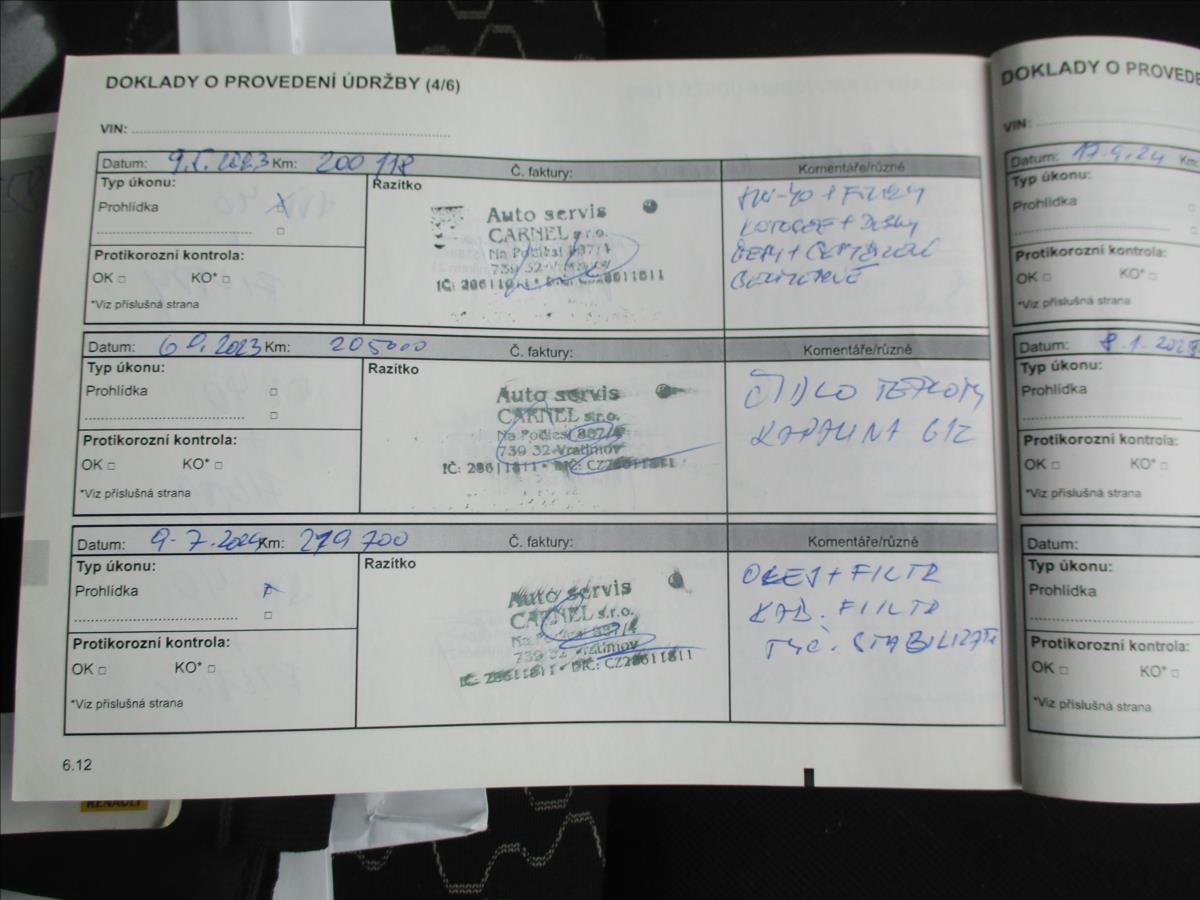 DOKLADY O PROVEDENÍ ÚDRŽBY (4/6)
VIN:
Datum: 2023 Km: 200 118 Č. faktury: Komentáře/různé
Typ úkonu: Razítko
Prohlídka
Auto servis
CARNEL s.r.o.
Na Podlesí 897/4
739 32 Vratimov
Protikorozní kontrola:
OK KO*
*Viz příslušná strana
Datum: 2023 Km: 205000 Č. faktury: Komentáře/různé
Typ úkonu: Razítko
Prohlídka
Auto servis
CARNEL s.r.o.
Na Podlesí 897/4
739 32 Vratimov
IČ: 28611811 • DIČ: CZ28611811
ČIDLO TEPLOTY
KAPALINA G12
Protikorozní kontrola:
OK KO*
*Viz příslušná strana
Datum: 9-7.2024 Km: 279 700 Č. faktury: Komentáře/různé
Typ úkonu: Razítko
Prohlídka
Auto servis
CARNEL s.r.o.
Na Podlesí 897/4
739 32 Vratimov
IČ: 28611811 • DIČ: CZ28611811
OLEJ + FILTR
KAB. FIILTR
TYČ. STABILIZÁT
Protikorozní kontrola:
OK KO*
*Viz příslušná strana
6.12
RENAULT
DOKLADY O PROVEDE
VIN:
Datum: 17.9.24 Km
Typ úkonu:
Prohlídka
Protikorozní kontrola:
OK KO*
*Viz příslušná strana
Datum: 8.1.202
Typ úkonu:
Prohlídka
Protikorozní kontrola:
OK KO*
*Viz příslušná strana
Datum:
Typ úkonu:
Prohlídka
Protikorozní kontrola:
OK KO*
*Viz příslušná strana